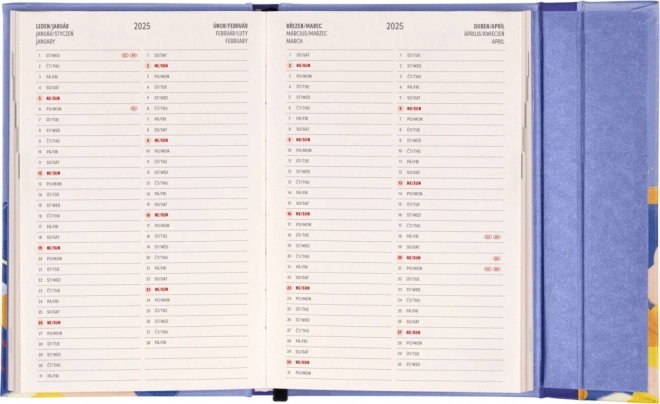 LEDEN/JANUÁR
JANUÁR/STYCZEŃ
JANUARY
2025
1 ST/WED
2 ČT/THU
3 PÁ/FRI
4 SO/SAT
5 NE/SUN
6 PO/MON
7 ÚT/TUE
8 ST/WED
9 ČT/THU
10 PÁ/FRI
11 SO/SAT
12 NE/SUN
13 PO/MON
14 ÚT/TUE
15 ST/WED
16 ČT/THU
17 PÁ/FRI
18 SO/SAT
19 NE/SUN
20 PO/MON
21 ÚT/TUE
22 ST/WED
23 ČT/THU
24 PÁ/FRI
25 SO/SAT
26 NE/SUN
27 PO/MON
28 ÚT/TUE
29 ST/WED
30 ČT/THU
31 PÁ/FRI
ÚNOR/FEBRUÁR
FEBRUÁR/LUTY
FEBRUARY
1 SO/SAT
2 NE/SUN
3 PO/MON
4 ÚT/TUE
5 ST/WED
6 ČT/THU
7 PÁ/FRI
8 SO/SAT
9 NE/SUN
10 PO/MON
11 ÚT/TUE
12 ST/WED
13 ČT/THU
14 PÁ/FRI
15 SO/SAT
16 NE/SUN
17 PO/MON
18 ÚT/TUE
19 ST/WED
20 ČT/THU
21 PÁ/FRI
22 SO/SAT
23 NE/SUN
24 PO/MON
25 ÚT/TUE
26 ST/WED
27 ČT/THU
28 PÁ/FRI
BŘEZEN/MAREC
MÁRCIUS/MARZEC
MARCH
2025
1 SO/SAT
2 NE/SUN
3 PO/MON
4 ÚT/TUE
5 ST/WED
6 ČT/THU
7 PÁ/FRI
8 SO/SAT
9 NE/SUN
10 PO/MON
11 ÚT/TUE
12 ST/WED
13 ČT/THU
14 PÁ/FRI
15 SO/SAT
16 NE/SUN
17 PO/MON
18 ÚT/TUE
19 ST/WED
20 ČT/THU
21 PÁ/FRI
22 SO/SAT
23 NE/SUN
24 PO/MON
25 ÚT/TUE
26 ST/WED
27 ČT/THU
28 PÁ/FRI
29 SO/SAT
30 NE/SUN
31 PO/MON
DUBEN/APRÍL
ÁPRILIS/KWIECIEŃ
APRIL
1 ÚT/TUE
2 ST/WED
3 ČT/THU
4 PÁ/FRI
5 SO/SAT
6 NE/SUN
7 PO/MON
8 ÚT/TUE
9 ST/WED
10 ČT/THU
11 PÁ/FRI
12 SO/SAT
13 NE/SUN
14 PO/MON
15 ÚT/TUE
16 ST/WED
17 ČT/THU
18 PÁ/FRI
19 SO/SAT
20 NE/SUN
21 PO/MON
22 ÚT/TUE
23 ST/WED
24 ČT/THU
25 PÁ/FRI
26 SO/SAT
27 NE/SUN
28 PO/MON
29 ÚT/TUE
30 ST/WED